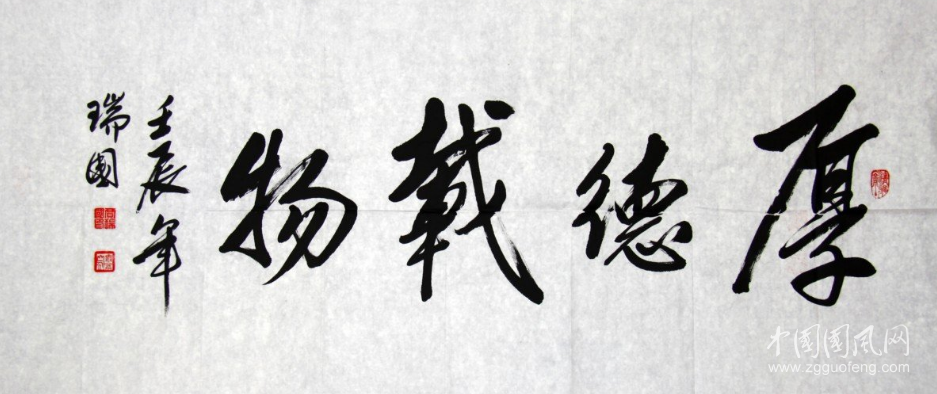 厚德載物
壬辰年
瑞國
中國國風网
www.zgguofeng.com